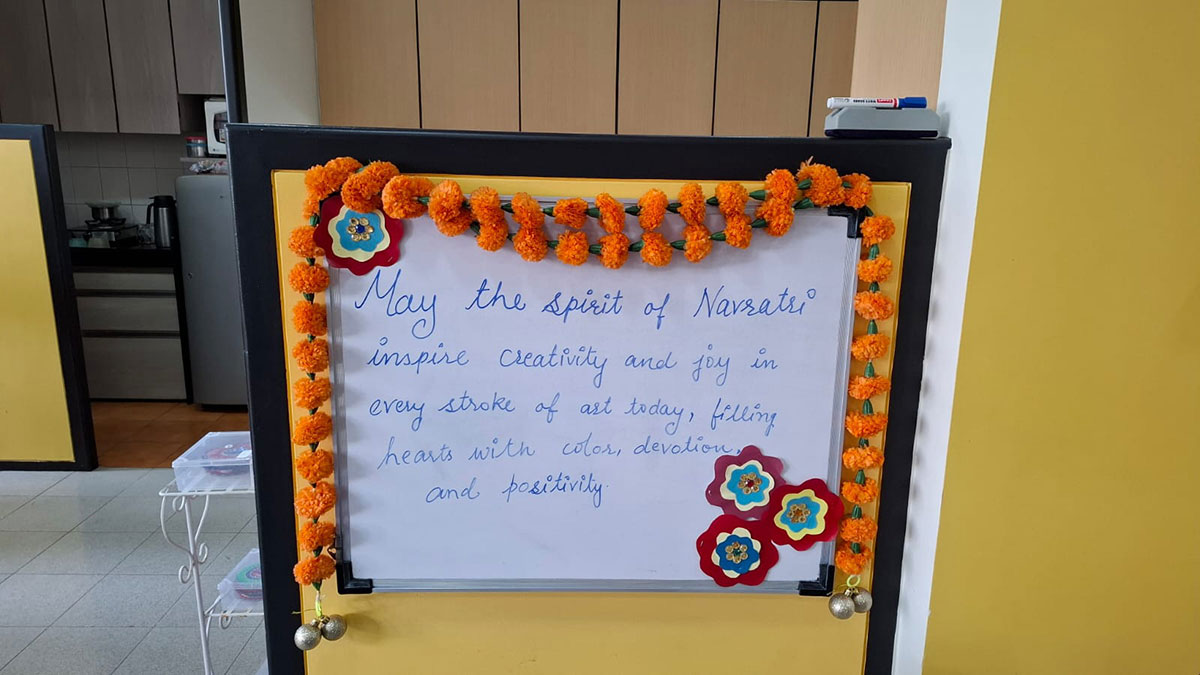 May the spirit of Navratri
inspire creativity and joy in
every stroke of art today, filling
hearts with color, devotion,
and positivity.